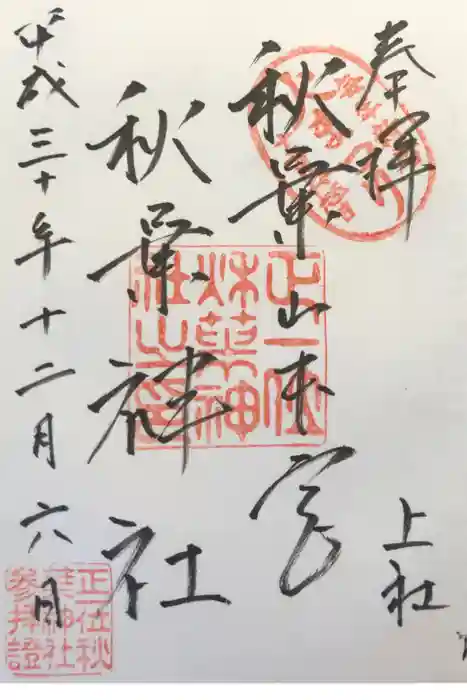 奉拝
上社
秋葉山本宮
秋葉神社
平成三十年十二月六日
正一位秋葉神社之印
正一位秋葉神社参拝證